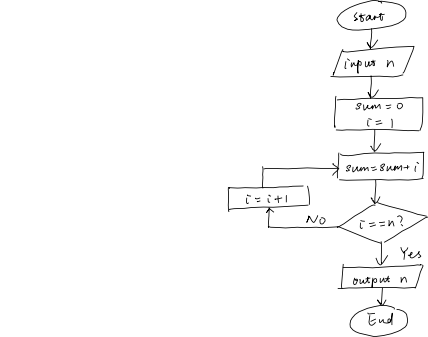 Start
input n
sum = 0
i = 1
sum=sum+i
i = i+1
No
i==n?
Yes
output n
End